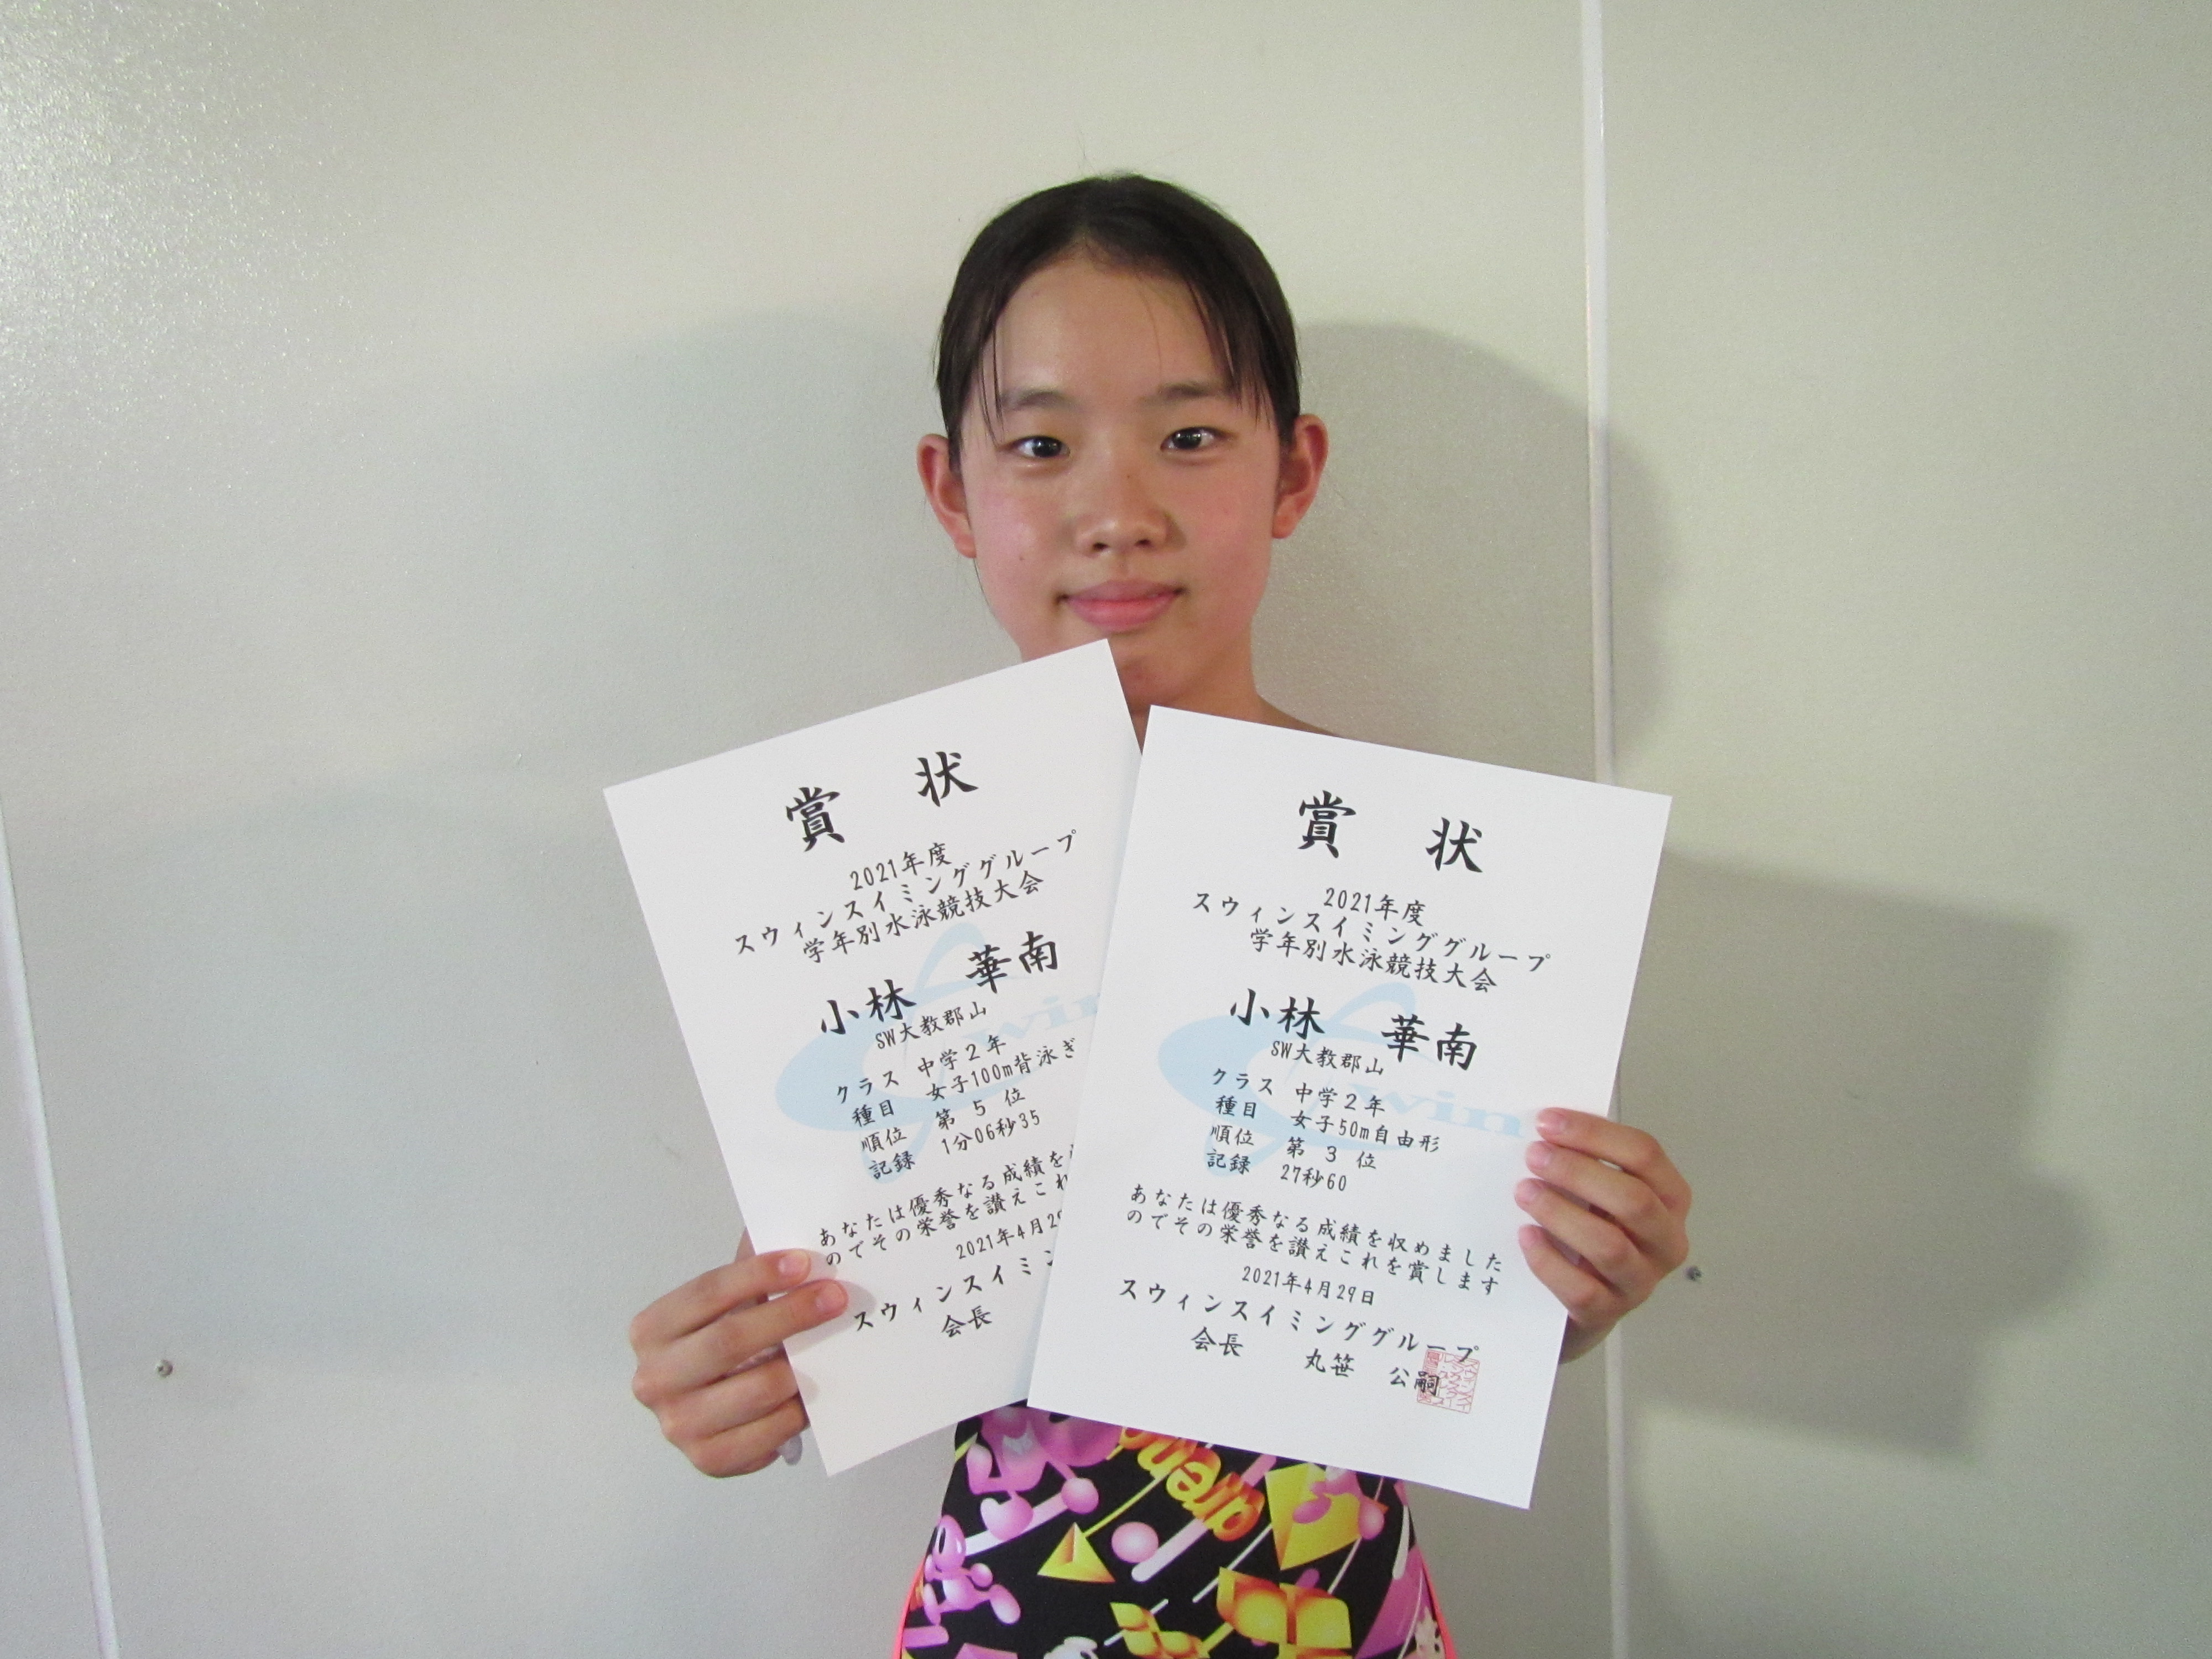 賞 状
2021年度
スウィンスイミンググループ
学年別水泳競技大会
小林 華南
SW大教郡山
クラス 中学2年
種目 女子100m背泳ぎ
順位 第 5 位
記録 1分06秒35
あなたは優秀なる成績を
のでその栄誉を讃えこれ
2021年4月29
スウィンスイミン
会長
賞 状
2021年度
スウィンスイミンググループ
学年別水泳競技大会
小林 華南
SW大教郡山
クラス 中学2年
種目 女子50m自由形
順位 第 3 位
記録 27秒60
あなたは優秀なる成績を収めました
のでその栄誉を讃えこれを賞します
2021年4月29日
スウィンスイミンググループ
会長 丸笹 公嗣
Swin
arena